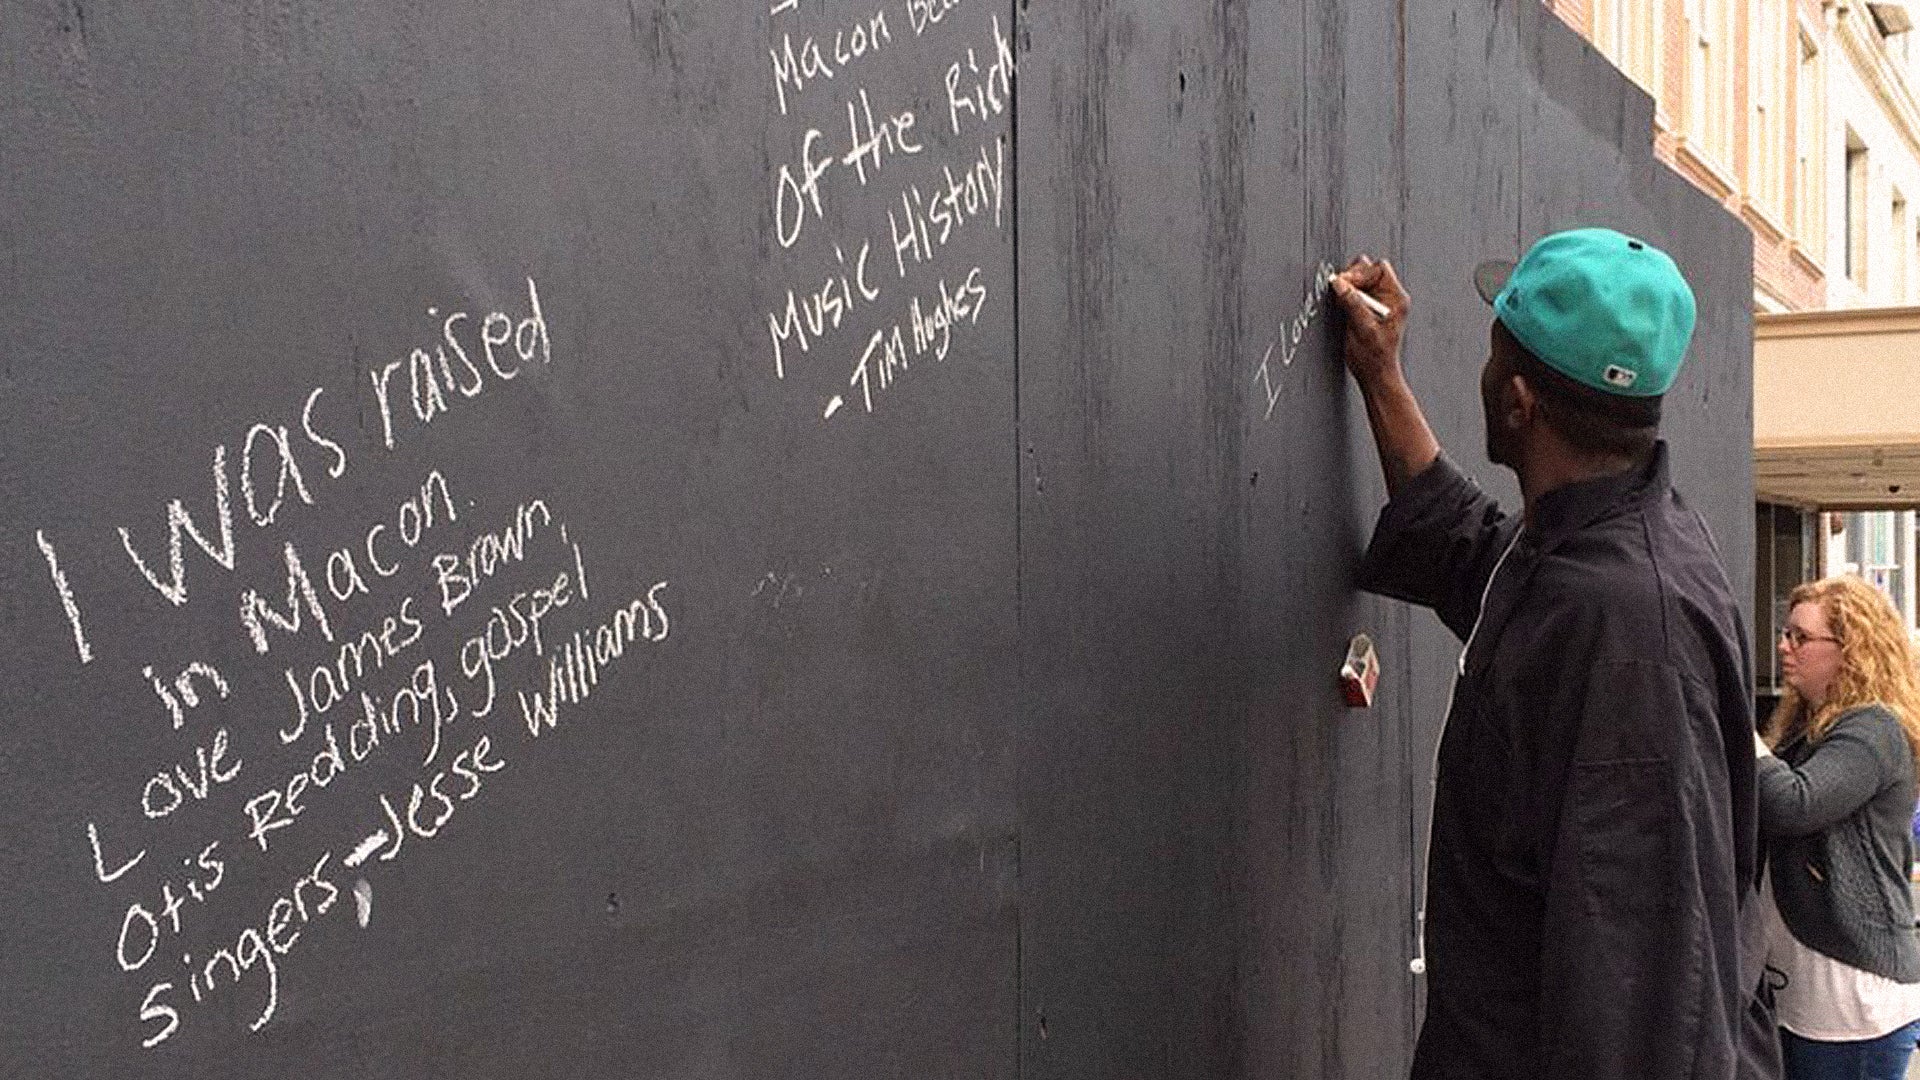 I was raised
in Macon.
Love James Brown,
Otis Redding, gospel
Singers, - Jesse Williams
Macon
Of the Rich
Music History
- Tim Hughes
I Love